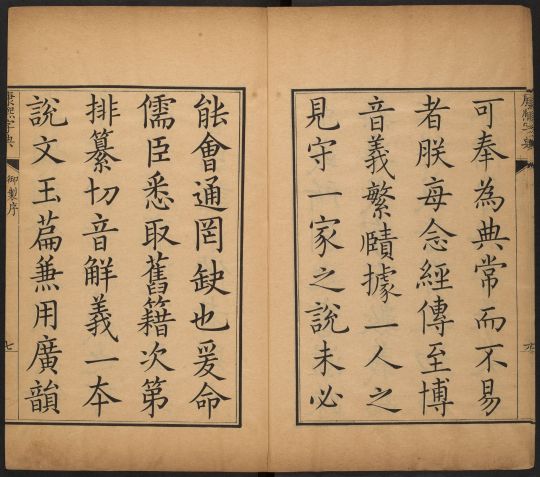 康熙字典
可奉為典常而不易
者朕每念經傳至博
音義繁賾據一人之
見守一家之說未必
能會通罔缺也爰命
儒臣悉取舊籍次第
排纂切音解義一本
說文玉萹兼用廣韻
康熙字典
御製序
七